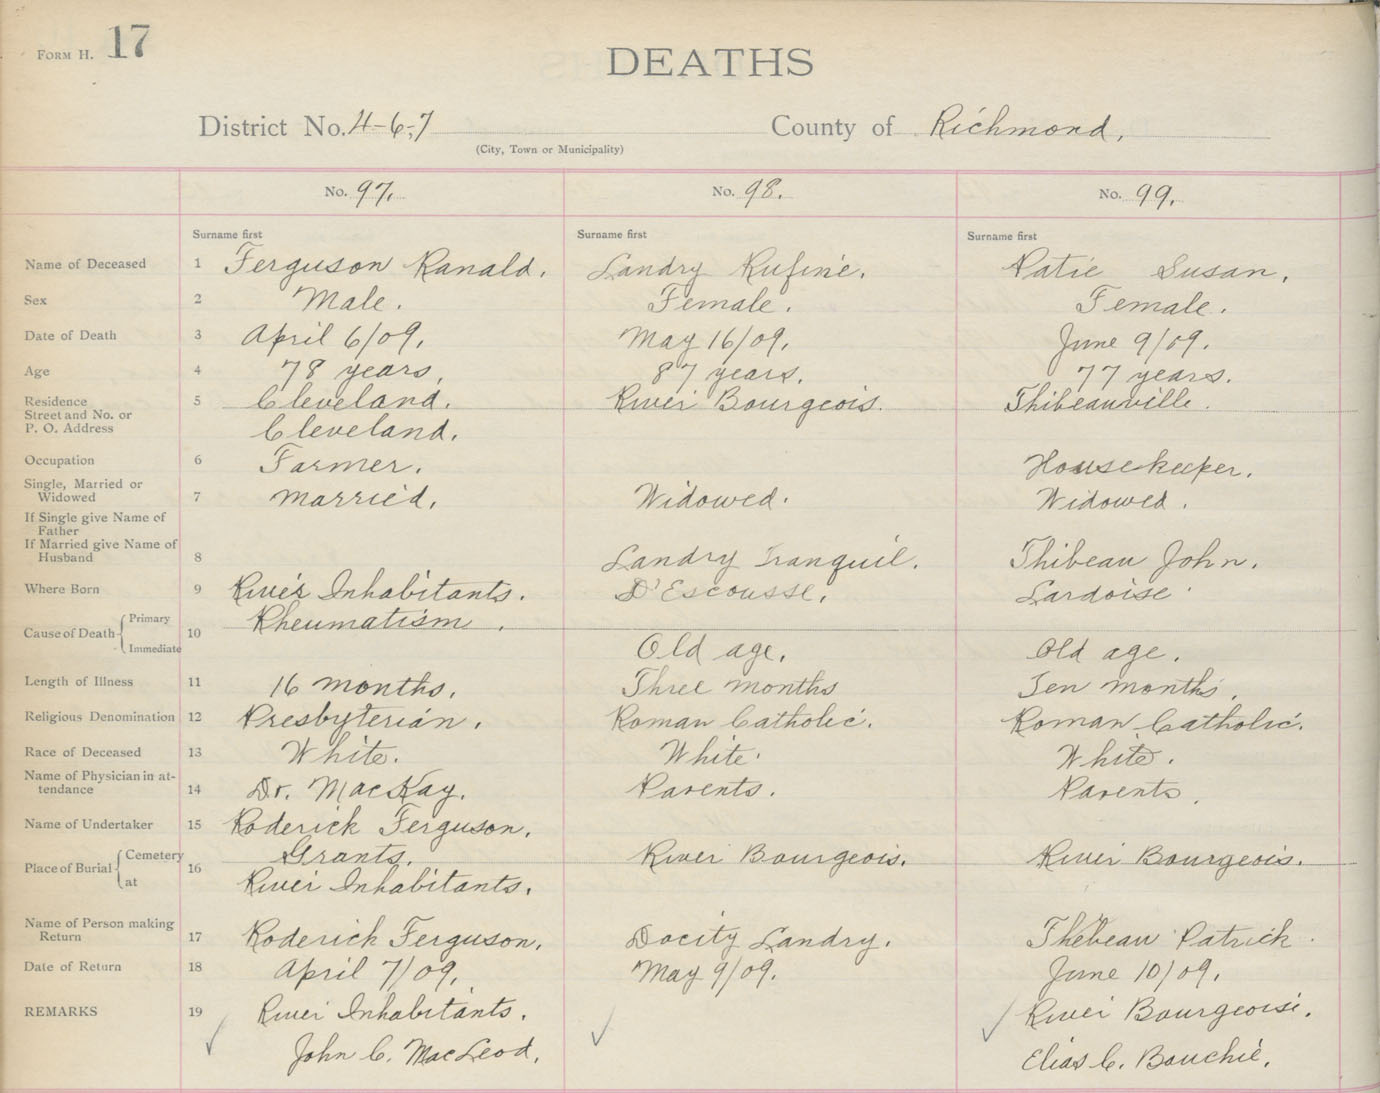 FORM H. 17
DEATHS
District No. 4-6-7 County of Richmond.
(City, Town or Municipality)
No. 97. No. 98. No. 99.
Surname first Surname first Surname first
Name of Deceased 1 Ferguson Ranald. Landry Rufine. Patie Susan.
Sex 2 Male. Female. Female.
Date of Death 3 April 6/09. May 16/09. June 9/09.
Age 4 78 years. 87 years. 77 years.
Residence 5 Cleveland. River Bourgeois. Thibeauville.
Street and No. or
P. O. Address Cleveland.
Occupation 6 Farmer. Housekeeper.
Single, Married or
Widowed 7 Married. Widowed. Widowed.
If Single give Name of
Father
If Married give Name of
Husband 8 Landry Tranquil. Thibeau John.
Where Born 9 River Inhabitants. D'Escousse. Lardoise
Cause of Death { Primary 10 Rheumatism.
Immediate Old age. Old age.
Length of Illness 11 16 months. Three months Ten months.
Religious Denomination 12 Presbyterian. Roman Catholic. Roman Catholic.
Race of Deceased 13 White. White. White.
Name of Physician in at-
tendance 14 Dr. MacKay. Parents. Parents.
Name of Undertaker 15 Roderick Ferguson.
Place of Burial { Cemetery 16 Grants. River Bourgeois. River Bourgeois.
at River Inhabitants.
Name of Person making
Return 17 Roderick Ferguson. Docity Landry. Thebeau Patrick.
Date of Return 18 April 7/09. May 9/09. June 10/09.
REMARKS 19 River Inhabitants. River Bourgeois.
John C. MacLeod. Elias C. Bouchie.